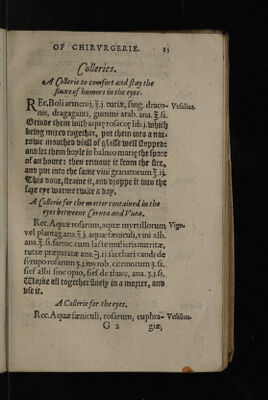 OF CHIRVRGERIE. 83
Colleries.
A Collerie to comfort and stay the
fluxe of humors in the eyes.
REc. Boli armenij, ℥.j. tutiæ, sang. draco- Vesalius.
nis, dragaganti, gummi arab. ana. ℥.ß.
Grinde them with aquę rosaceę lib.j. which
being mixed together, put them into a nar-
rowe mouthed viall of glasse well stopped:
and let them boyle in balneo marię the space
of an houre: then remoue it from the fire,
and put into the same vini granatorum ℥.ij.
This done, straine it, and droppe it into the
eye warme twice a day.
A Collerie for the matter contained in the
eyes betweene Cornea and Vuea.
Rec. Aquæ rosarum, aquæ myrtillorum Vigo.
vel plantag ana. ℥.j. aquæ fœniculi, vini alb.
ana. ℥.ß. sarcoc. cum lacte mulieris nutritæ,
tutiæ præparatæ ana. ij. sacchari candi de
syrupo rosarum ʒ.j. myrob. citrinorum ʒ.ß.
sief albi sine opio, sief de thure, ana. ß.
Worke all together finely in a morter, and
vse it.
A Collerie for the eyes.
Rec. Aquæ fœniculi, rosarum, euphra- Vesalius.
G 2 giæ,